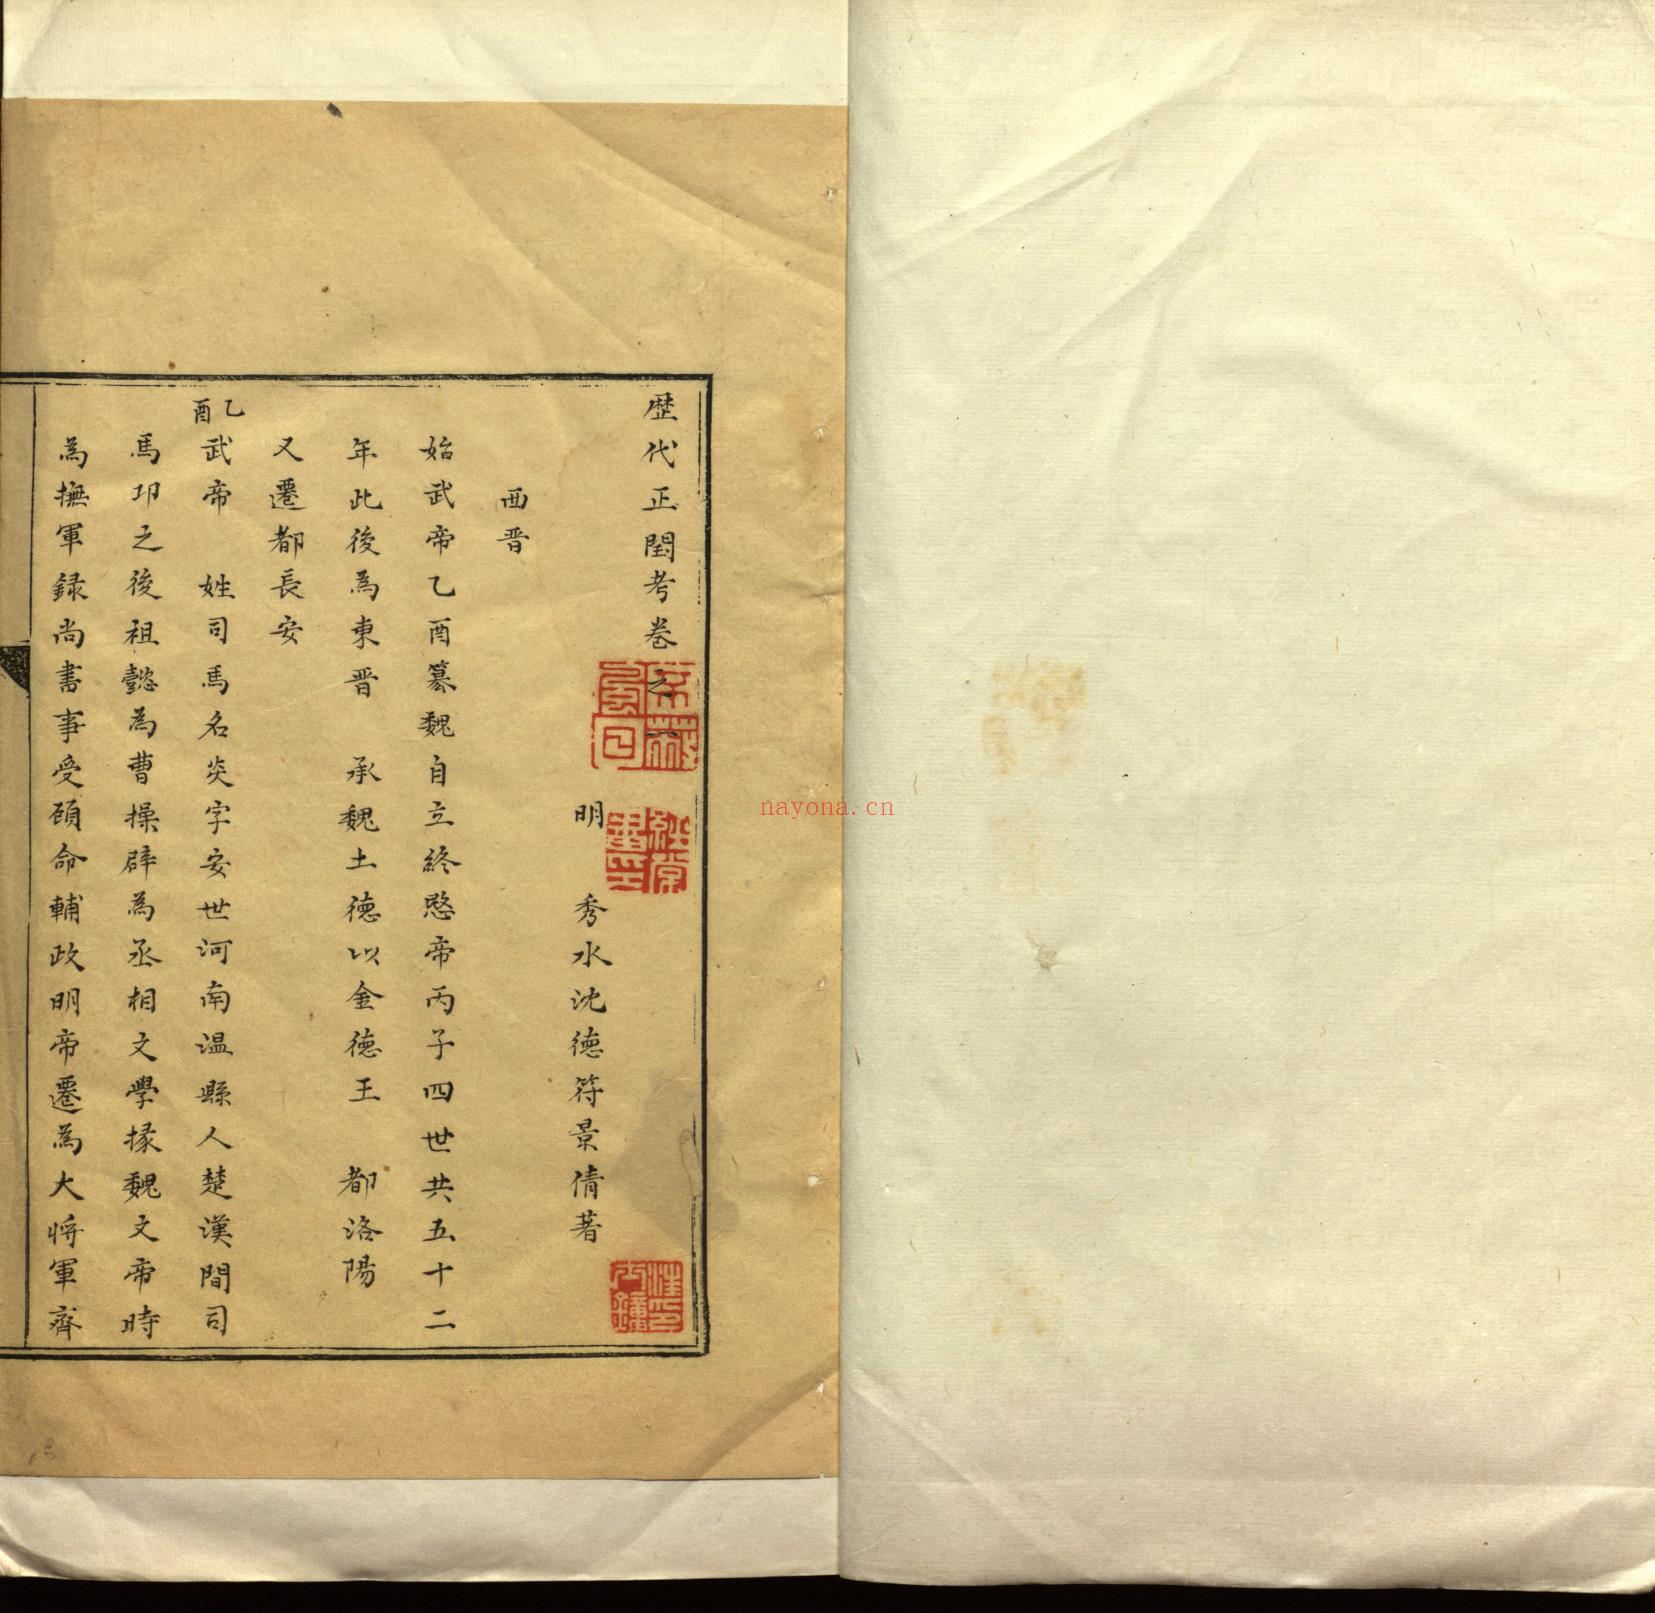 歷代正閏考卷之六
明　秀水沈德符景倩著
西晉
始武帝乙酉篡魏自立終愍帝丙子四世共五十二
年此後為東晉　承魏土德以金德王　都洛陽
又遷都長安
乙酉
武帝　姓司馬名炎字安世河南温縣人楚漢間司
馬卭之後祖懿為曹操辟為丞相文學掾魏文帝時
為撫軍録尚書事受顧命輔政明帝遷為大將軍齊
nayona.cn